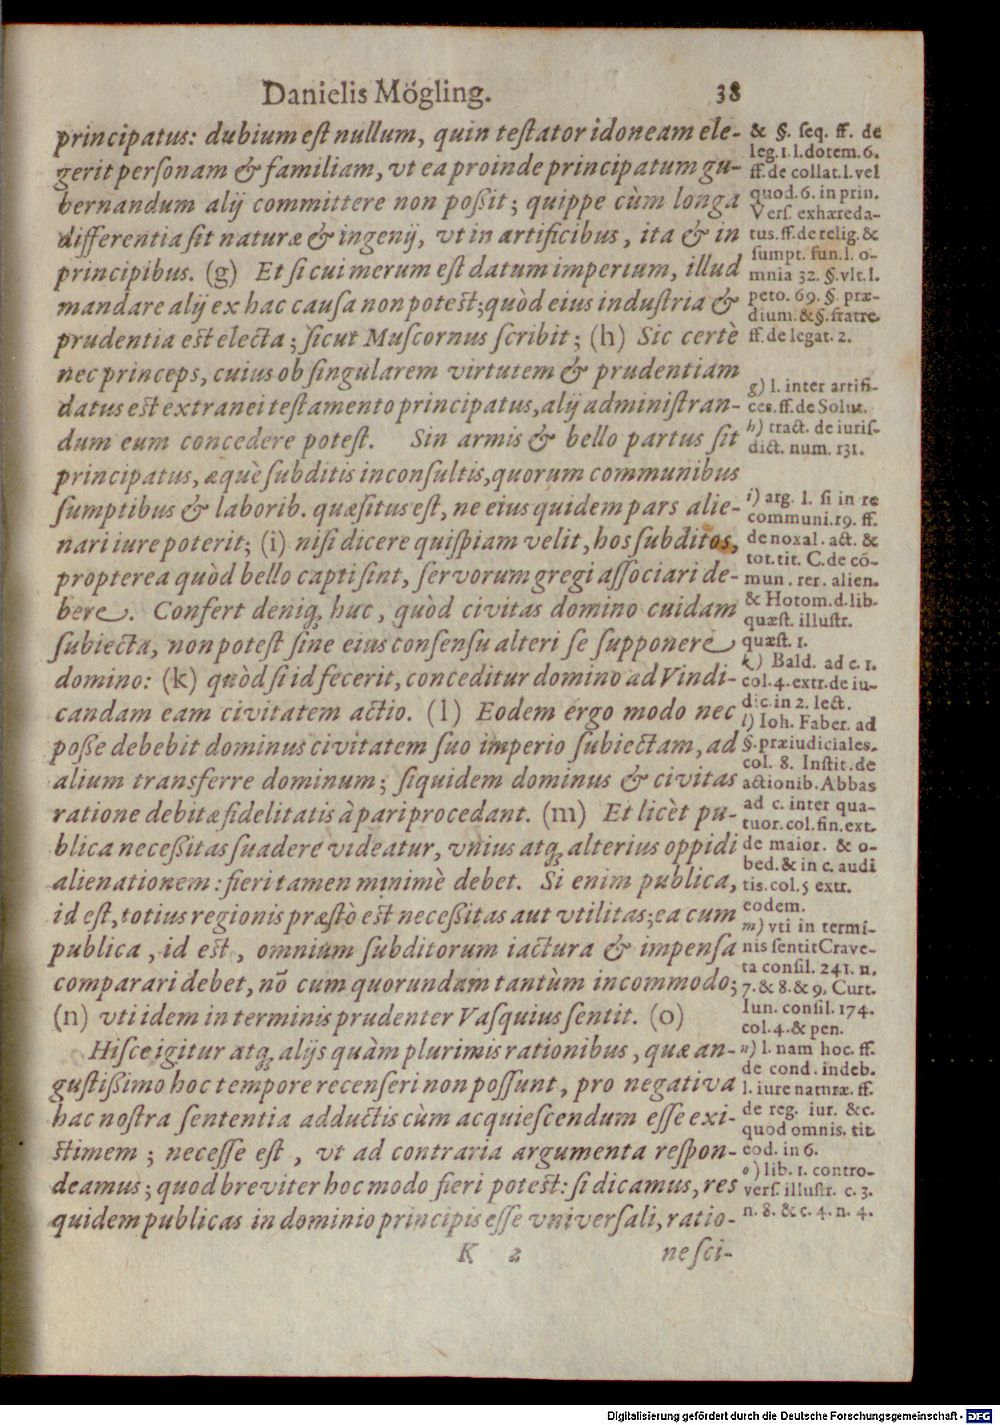 Danielis Mögling. 38
principatus: dubium est nullum, quin testator idoneam ele-
gerit personam & familiam, vt ea proinde principatum gu-
bernandum alij committere non poßit; quippe cùm longa
differentia sit naturæ & ingenij, vt in artificibus, ita & in
principibus. (g) Et si cui merum est datum imperium, illud
mandare alij ex hac causa non potest; quòd eius industria &
prudentia est electa; sicut Muscornus scribit; (h) Sic certè
nec princeps, cuius ob singularem virtutem & prudentiam
datus est extranei testamento principatus, alij administran-
dum eum concedere potest. Sin armis & bello partus sit
principatus, æquè subditis inconsultis, quorum communibus
sumptibus & laborib. quæsitus est, ne eius quidem pars alie-
nari iure poterit; (i) nisi dicere quispiam velit, hos subditos,
propterea quòd bello capti sint, servorum gregi associari de-
bere. Confert deniq; huc, quòd civitas domino cuidam
subiecta, non potest sine eius consensu alteri se supponere
domino: (k) quòd si id fecerit, conceditur domino ad Vindi-
candam eam civitatem actio. (l) Eodem ergo modo nec
posse debebit dominus civitatem suo imperio subiectam, ad
alium transferre dominum; siquidem dominus & civitas
ratione debitæ fidelitatis à pari procedant. (m) Et licèt pu-
blica neceßitas suadere videatur, vnius atq; alterius oppidi
alienationem: fieri tamen minimè debet. Si enim publica,
id est, totius regionis præstò est neceßitas aut vtilitas; ea cum
publica, id est, omnium subditorum iactura & impensa
comparari debet, nō cum quorundam tantùm incommodo;
(n) vti idem in terminis prudenter Vasquius sentit. (o)
Hisce igitur atq; alijs quàm plurimis rationibus, quæ an-
gustißimo hoc tempore recenseri non possunt, pro negativa
hac nostra sententia adductis cùm acquiescendum esse exi-
stimem; necesse est, vt ad contraria argumenta respon-
deamus; quod breviter hoc modo fieri potest: si dicamus, res
quidem publicas in dominio principis esse vniversali, ratio-
K 2 ne sci-
& §. seq. ff. de
leg. 1. l. dotem. 6.
ff. de collat. l. vel
quod. 6. in prin.
Vers. exhæreda-
tus. ff. de relig. &
sumpt. fun. l. o-
mnia 32. §. vlt. l.
peto. 69. §. præ-
dium. & §. fratre.
ff. de legat. 2.
g) l. inter artifi-
ces. ff. de Solut.
h) tract. de iuris-
dict. num. 131.
i) arg. l. si in re
communi. 19. ff.
de noxal. act. &
tot. tit. C. de cō-
mun. rer. alien.
& Hotom. d. lib.
quæst. illustr.
quæst. 1.
k) Bald. ad c. 1.
col. 4. extr. de iu-
dic. in 2. lect.
l) Ioh. Faber. ad
§. præiudiciales.
col. 8. Instit. de
actionib. Abbas
ad c. inter qua-
tuor. col. fin. ext.
de maior. & o-
bed. & in c. audi
tis. col. 5 extr.
eodem.
m) vti in termi-
nis sentit Crave-
ta consil. 241. n.
7. & 8. & 9. Curt.
Iun. consil. 174.
col. 4. & pen.
n) l. nam hoc. ff.
de cond. indeb.
l. iure naturæ. ff.
de reg. iur. & c.
quod omnis. tit.
eod. in 6.
o) lib. 1. contro-
vers. illustr. c. 3.
n. 8. & c. 4. n. 4.
Digitalisierung gefördert durch die Deutsche Forschungsgemeinschaft - DFG